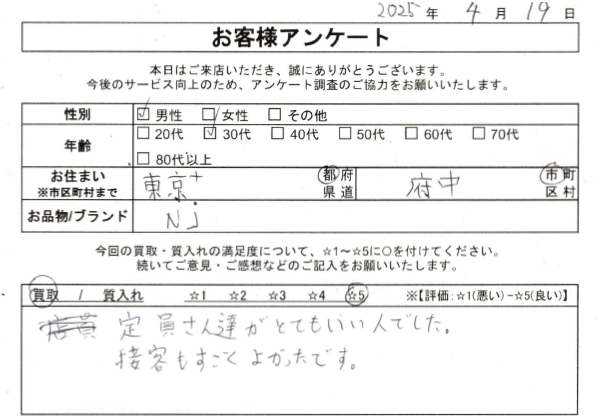 2025 年 4 月 19 日
お客様アンケート
本日はご来店いただき、誠にありがとうございます。
今後のサービス向上のため、アンケート調査のご協力をお願いいたします。
性別 ☑男性 □女性 □その他
年齢 □20代 ☑30代 □40代 □50代 □60代 □70代
□80代以上
お住まい ※市区町村まで 東京 都府県道 府中 市町区村
お品物/ブランド NJ
今回の買取・質入れの満足度について、☆1～☆5に○を付けてください。
続いてご意見・ご感想などのご記入をお願いいたします。
買取 / 質入れ ☆1 ☆2 ☆3 ☆4 ☆5 ※【評価:☆1(悪い)-☆5(良い)】
定員さん達がとてもいい人でした。
接客もすごくよかったです。